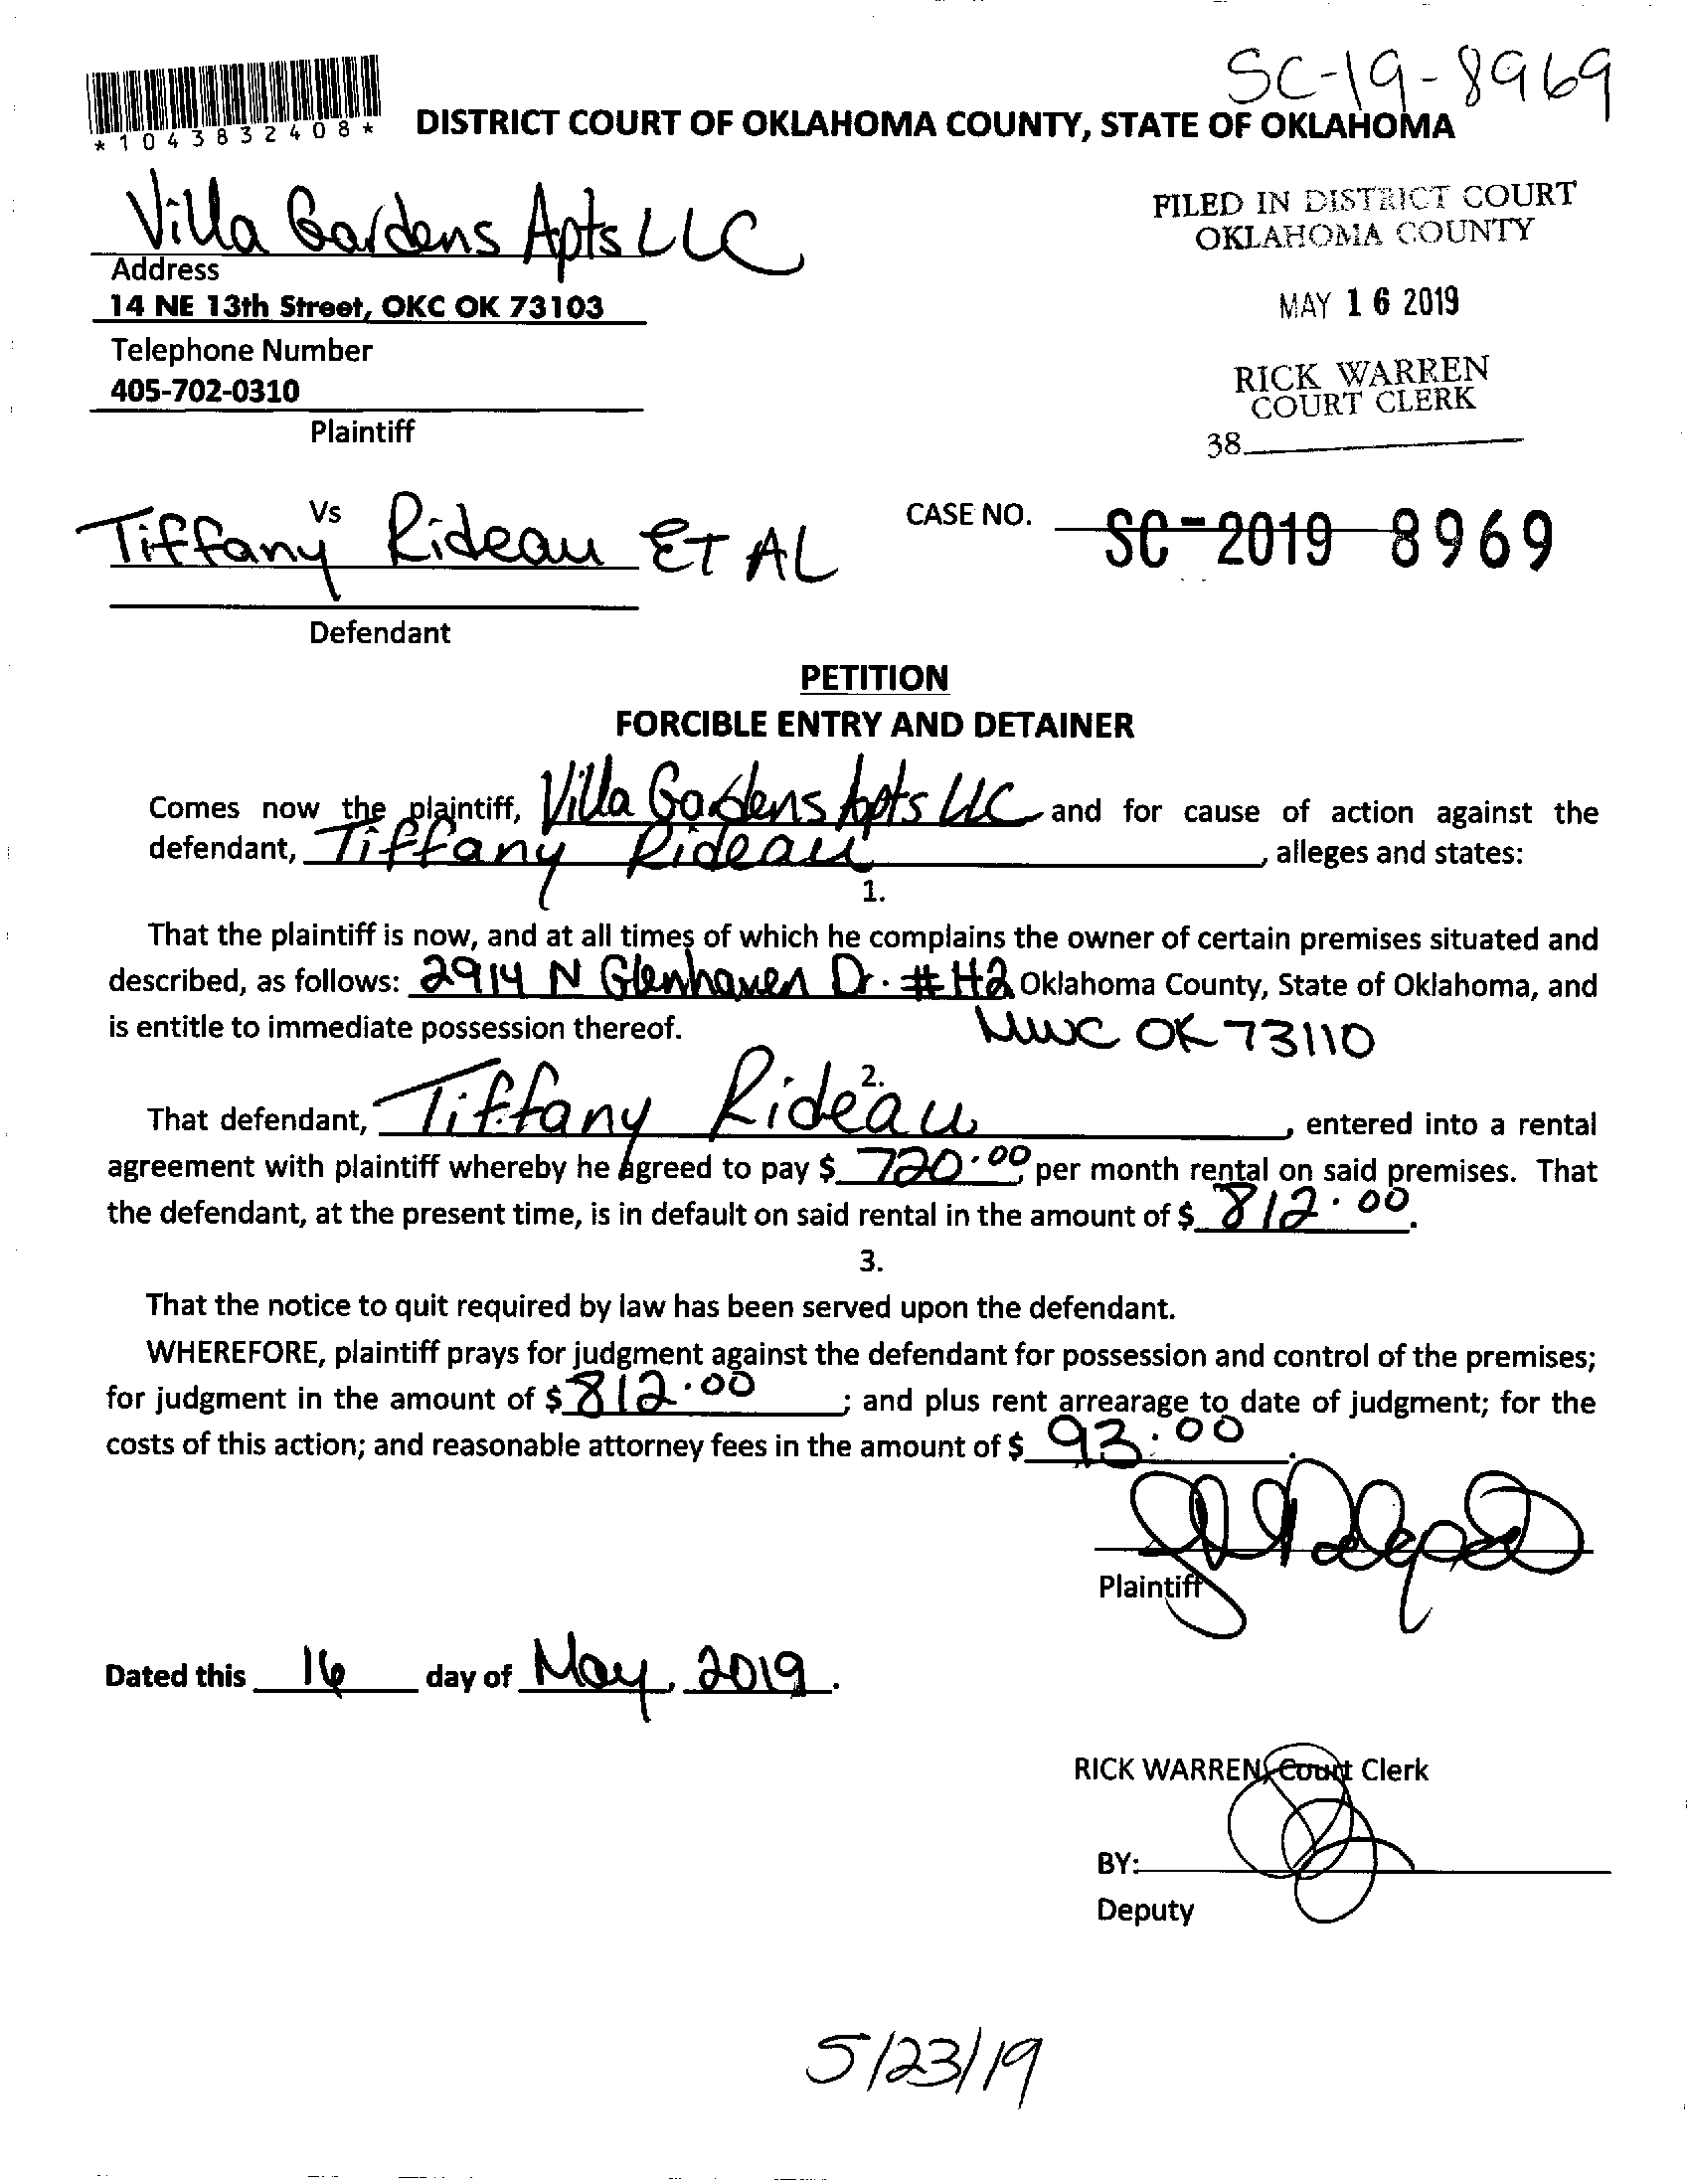 SC-19-8969
*1043832408*
DISTRICT COURT OF OKLAHOMA COUNTY, STATE OF OKLAHOMA
Villa Gardens Apts LLC
Address
14 NE 13th Street, OKC OK 73103
Telephone Number
405-702-0310
Plaintiff
FILED IN DISTRICT COURT
OKLAHOMA COUNTY
MAY 16 2019
RICK WARREN
COURT CLERK
38
Vs
Tiffany Rideau ET AL
Defendant
CASE NO. SC-2019 8969
PETITION
FORCIBLE ENTRY AND DETAINER
Comes now the plaintiff, Villa Gardens Apts LLC and for cause of action against the
defendant, Tiffany Rideau, alleges and states:
1.
That the plaintiff is now, and at all times of which he complains the owner of certain premises situated and
described, as follows: 2914 N Glenhaven Dr. #H2 Oklahoma County, State of Oklahoma, and
is entitle to immediate possession thereof. MWC OK 73110
2.
That defendant, Tiffany Rideau, entered into a rental
agreement with plaintiff whereby he agreed to pay $ 720.00, per month rental on said premises. That
the defendant, at the present time, is in default on said rental in the amount of $ 812.00.
3.
That the notice to quit required by law has been served upon the defendant.
WHEREFORE, plaintiff prays for judgment against the defendant for possession and control of the premises;
for judgment in the amount of $ 812.00; and plus rent arrearage to date of judgment; for the
costs of this action; and reasonable attorney fees in the amount of $ 93.00.
Plaintiff
Dated this 16 day of May, 2019.
RICK WARREN, Court Clerk
BY:
Deputy
5/23/19